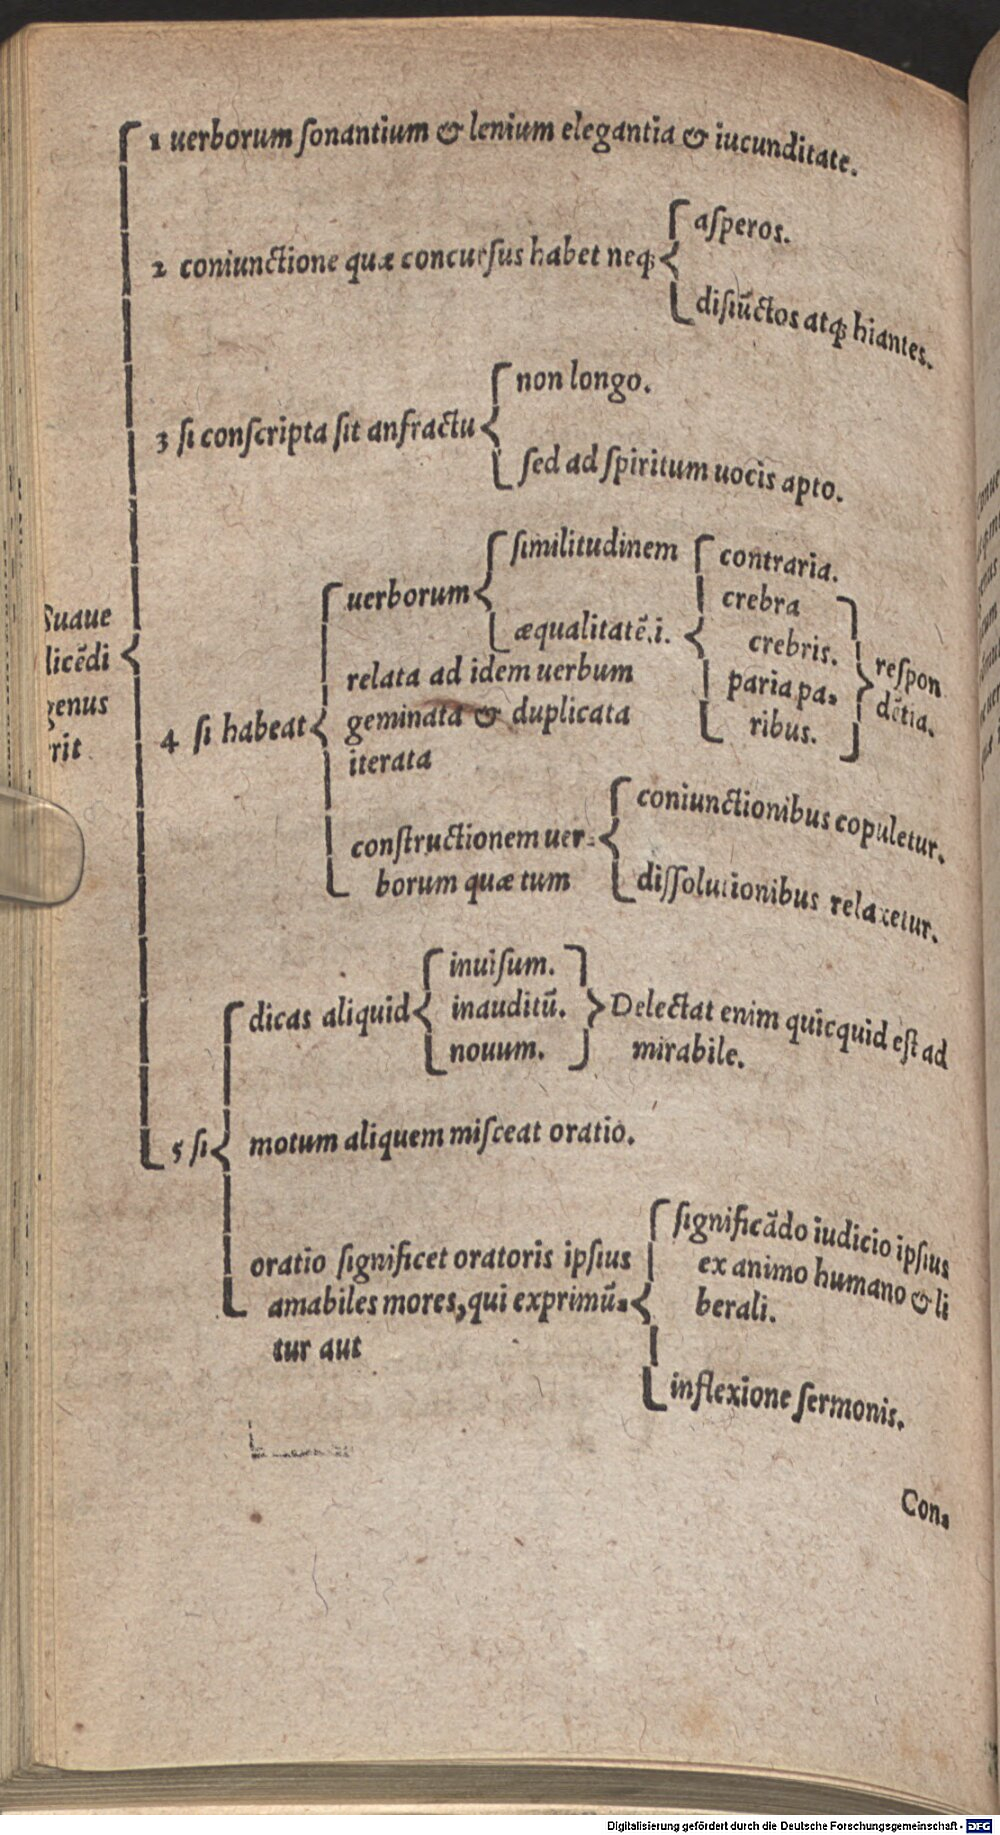 1 uerborum ſonantium & lenium elegantia & iucunditate.
2 coniunctione quæ concurſus habet neq;
aſperos.
diſiūctos atq; hiantes.
3 ſi conſcripta ſit anfractu
non longo.
ſed ad ſpiritum uocis apto.
Suaue
dicēdi
genus
erit
4 ſi habeat
uerborum
ſimilitudinem
æqualitatē.i.
contraria.
crebra
crebris.
paria pa-
ribus.
reſpon
dētia.
relata ad idem uerbum
geminata & duplicata
iterata
conſtructionem uer-
borum quæ tum
coniunctionibus copuletur.
diſſolutionibus relaxetur.
5 ſi
dicas aliquid
inuiſum.
inauditū.
nouum.
Delectat enim quicquid eſt ad
mirabile.
motum aliquem miſceat oratio.
oratio ſignificet oratoris ipſius
amabiles mores, qui exprimū-
tur aut
ſignificādo iudicio ipſius
ex animo humano & li
berali.
inflexione ſermonis.
Con-
Digitalisierung gefördert durch die Deutsche Forschungsgemeinschaft - DFG